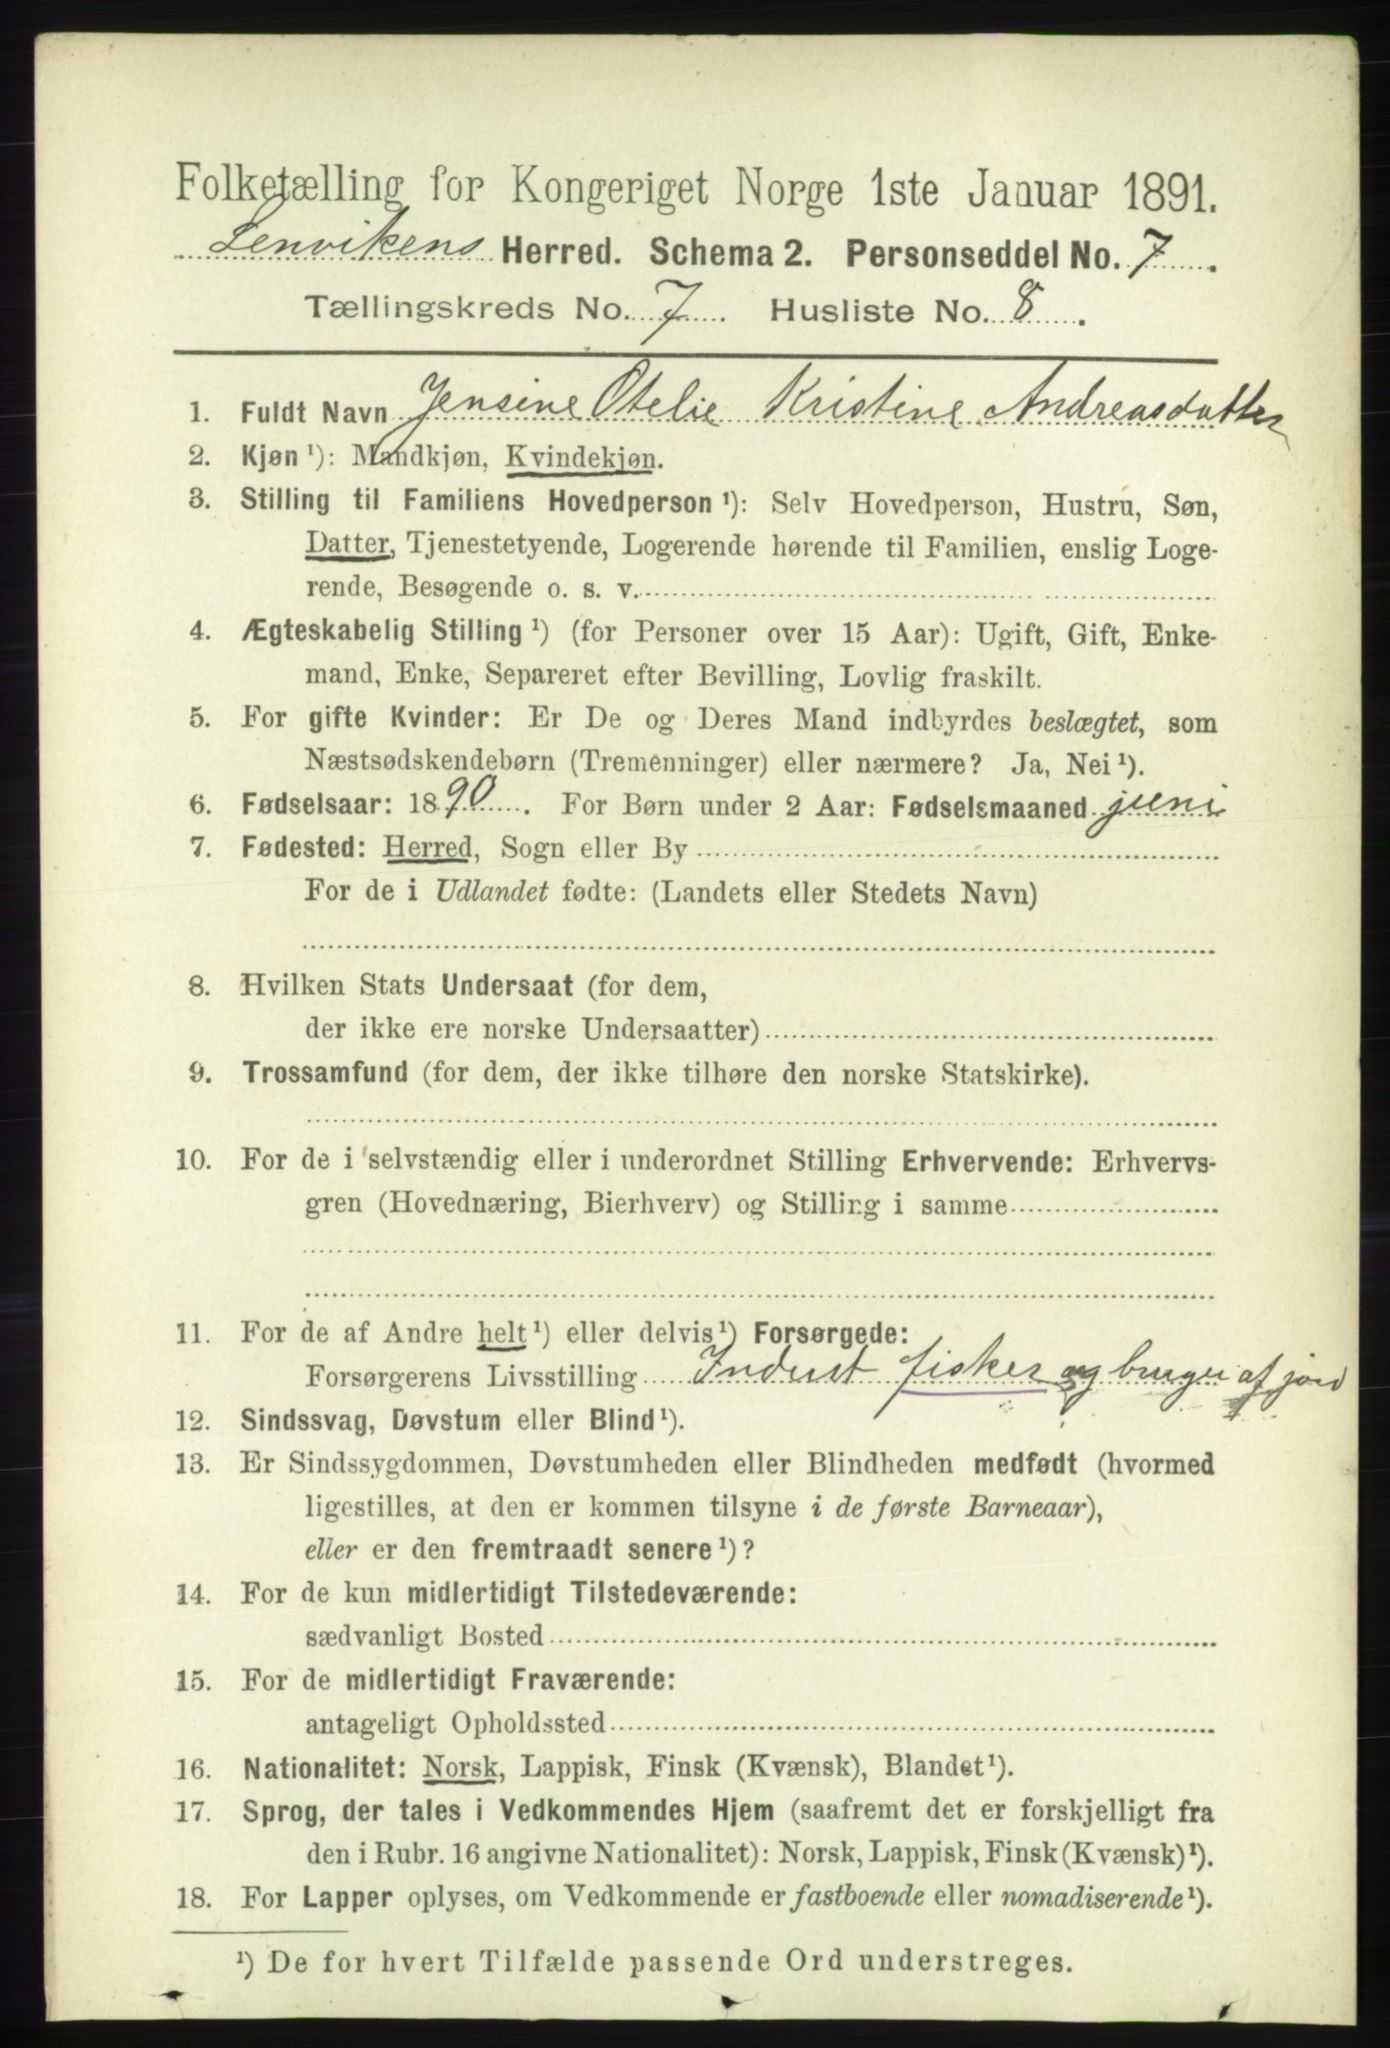 Folketælling for Kongeriget Norge 1ste Januar 1891.
Lenvikens Herred. Schema 2. Personseddel No. 7.
Tællingskreds No. 7. Husliste No. 8.
1. Fuldt Navn Jensine Otelie Kristine Andreasdatter
2. Kjøn ¹): Mandkjøn, Kvindekjøn.
3. Stilling til Familiens Hovedperson ¹): Selv Hovedperson, Hustru, Søn,
Datter, Tjenestetyende, Logerende hørende til Familien, enslig Loge-
rende, Besøgende o. s. v.
4. Ægteskabelig Stilling ¹) (for Personer over 15 Aar): Ugift, Gift, Enke-
mand, Enke, Separeret efter Bevilling, Lovlig fraskilt.
5. For gifte Kvinder: Er De og Deres Mand indbyrdes beslægtet, som
Næstsødskendebørn (Tremenninger) eller nærmere? Ja, Nei ¹).
6. Fødselsaar: 1890. For Børn under 2 Aar: Fødselsmaaned juni
7. Fødested: Herred, Sogn eller By
For de i Udlandet fødte: (Landets eller Stedets Navn)
8. Hvilken Stats Undersaat (for dem,
der ikke ere norske Undersaatter)
9. Trossamfund (for dem, der ikke tilhøre den norske Statskirke).
10. For de i selvstændig eller i underordnet Stilling Erhvervende: Erhvervs-
gren (Hovednæring, Bierhverv) og Stilling i samme
11. For de af Andre helt ¹) eller delvis ¹) Forsørgede:
Forsørgerens Livsstilling Inderst fisker og bruger af jord
12. Sindssvag, Døvstum eller Blind ¹).
13. Er Sindssygdommen, Døvstumheden eller Blindheden medfødt (hvormed
ligestilles, at den er kommen tilsyne i de første Barneaar),
eller er den fremtraadt senere ¹)?
14. For de kun midlertidigt Tilstedeværende:
sædvanligt Bosted
15. For de midlertidigt Fraværende:
antageligt Opholdssted
16. Nationalitet: Norsk, Lappisk, Finsk (Kvænsk), Blandet ¹).
17. Sprog, der tales i Vedkommendes Hjem (saafremt det er forskjelligt fra
den i Rubr. 16 angivne Nationalitet): Norsk, Lappisk, Finsk (Kvænsk) ¹).
18. For Lapper oplyses, om Vedkommende er fastboende eller nomadiserende ¹).
¹) De for hvert Tilfælde passende Ord understreges.